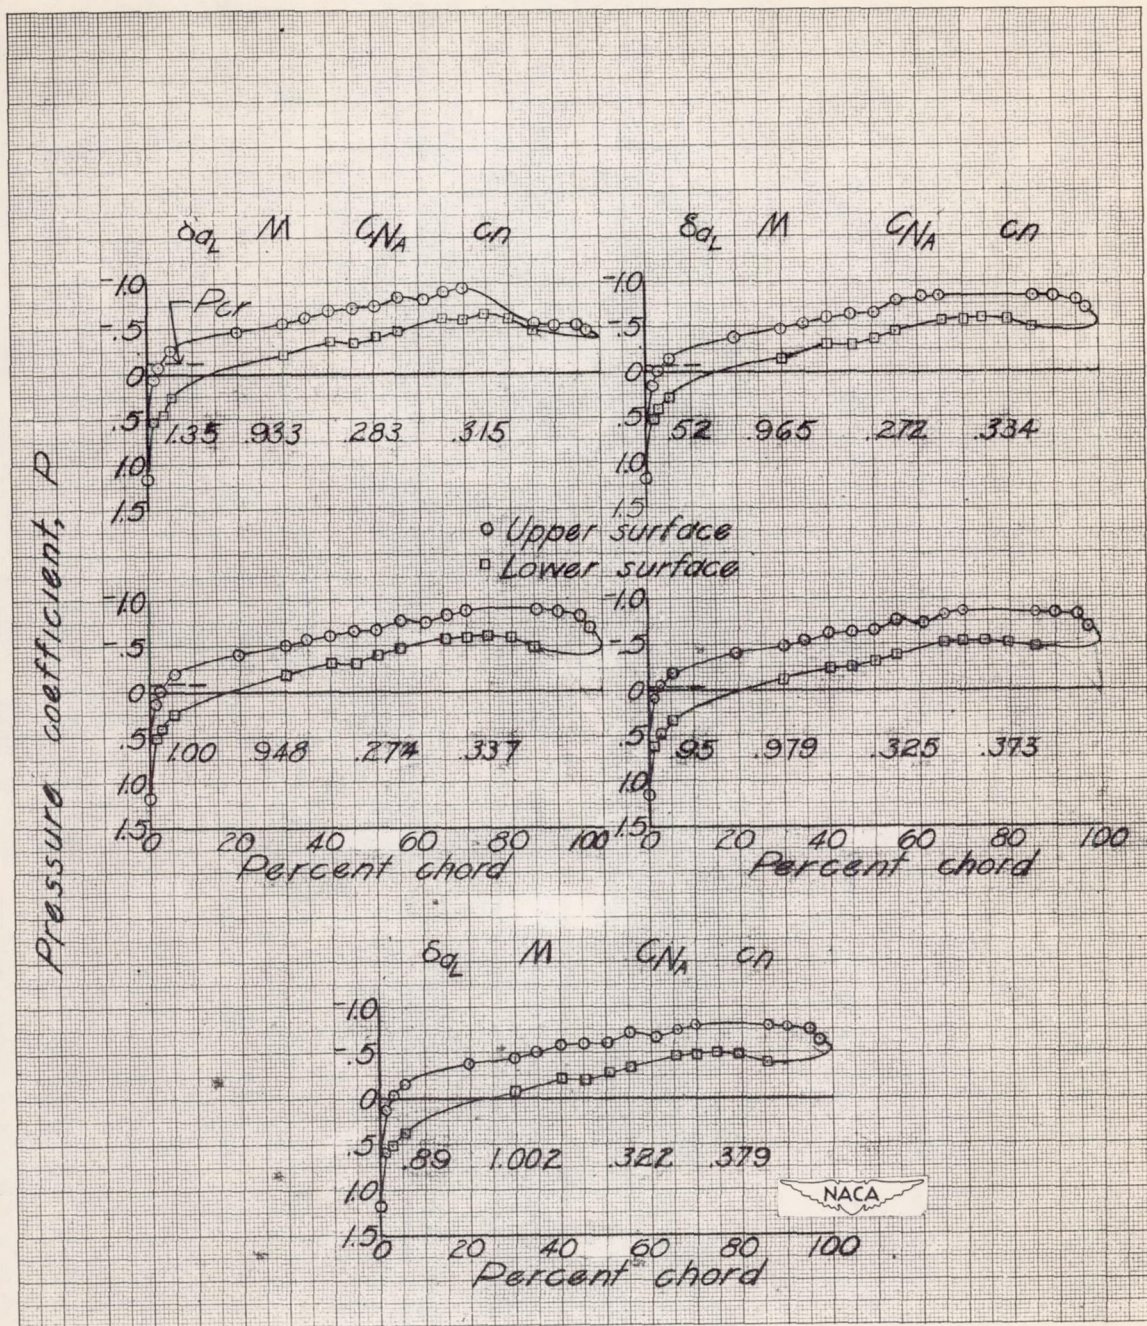 δaL M CNA cn
δaL M CNA cn
-1.0
-.5
0
.5
1.0
1.5
Pcr
1.35 .933 .283 .315
-1.0
-.5
0
.5
1.0
1.5
.52 .965 .272 .334
Pressure coefficient, P
Upper surface
Lower surface
-1.0
-.5
0
.5
1.0
1.5
1.00 .948 .274 .337
0 20 40 60 80 100
Percent chord
-1.0
-.5
0
.5
1.0
1.5
.95 .979 .325 .373
0 20 40 60 80 100
Percent chord
δaL M CNA cn
-1.0
-.5
0
.5
1.0
1.5
.89 1.002 .322 .379
NACA
0 20 40 60 80 100
Percent chord